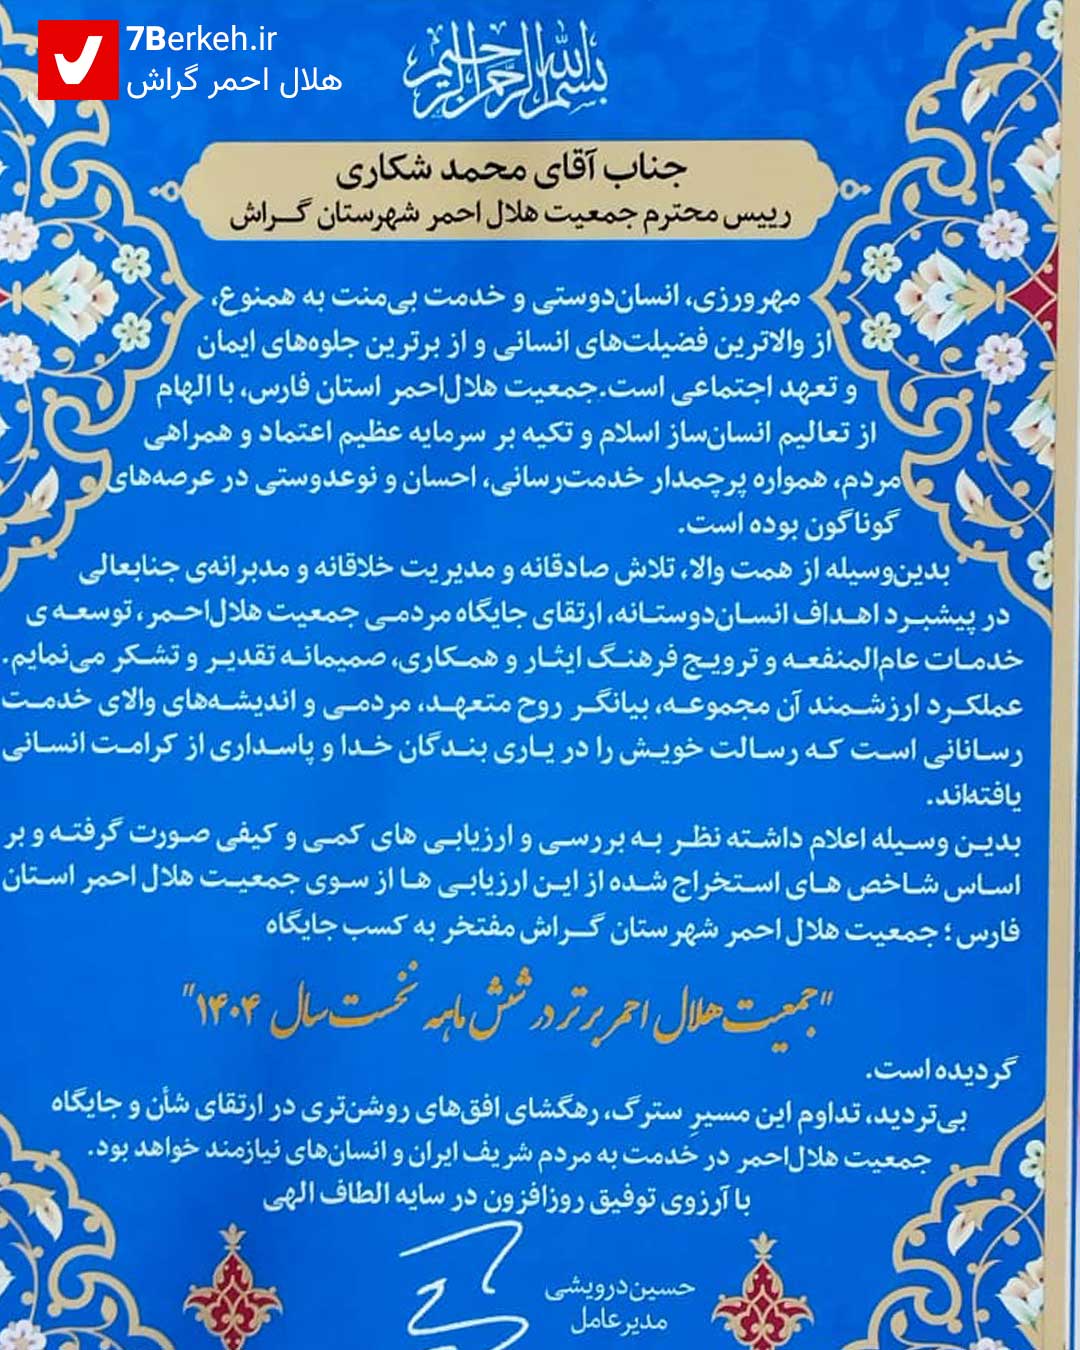 7Berkeh.ir
هلال احمر گراش
بسم الله الرحمن الرحیم
جناب آقای محمد شکاری
رییس محترم جمعیت هلال احمر شهرستان گـراش
مهرورزی، انسان‌دوستی و خدمت بی‌منت به همنوع،
از والاترین فضیلت‌های انسانی و از برترین جلوه‌های ایمان
و تعهد اجتماعی است.جمعیت هلال‌احمر استان فارس، با الهام
از تعالیم انسان‌ساز اسلام و تکیه بر سرمایه عظیم اعتماد و همراهی
مردم، همواره پرچمدار خدمت‌رسانی، احسان و نوعدوستی در عرصه‌های
گوناگون بوده است.
بدین‌وسیله از همت والا، تلاش صادقانه و مدیریت خلاقانه و مدبرانه‌ی جنابعالی
در پیشبرد اهداف انسان‌دوستانه، ارتقای جایگاه مردمی جمعیت هلال‌احمر، توسعه ی
خدمات عام‌المنفعه و ترویج فرهنگ ایثار و همکاری، صمیمانه تقدیر و تشکر می‌نمایم.
عملکرد ارزشمند آن مجموعه، بیانگر روح متعهد، مردمی و اندیشه‌های والای خدمت
رسانانی است که رسالت خویش را در یاری بندگان خدا و پاسداری از کرامت انسانی
یافته‌اند.
بدین وسیله اعلام داشته نظر به بررسی و ارزیابی های کمی و کیفی صورت گرفته و بر
اساس شاخص های استخراج شده از این ارزیابی ها از سوی جمعیت هلال احمر استان
فارس؛ جمعیت هلال احمر شهرستان گـراش مفتخر به کسب جایگاه
"جمعیت هلال احمر برتر در شش ماهه نخست سال ۱۴۰۴"
گردیده است.
بی‌تردید، تداوم این مسیرِ سترگ، رهگشای افق‌های روشن‌تری در ارتقای شأن و جایگاه
جمعیت هلال‌احمر در خدمت به مردم شریف ایران و انسان‌های نیازمند خواهد بود.
با آرزوی توفیق روزافزون در سایه الطاف الهی
حسین درویشی
مدیرعامل